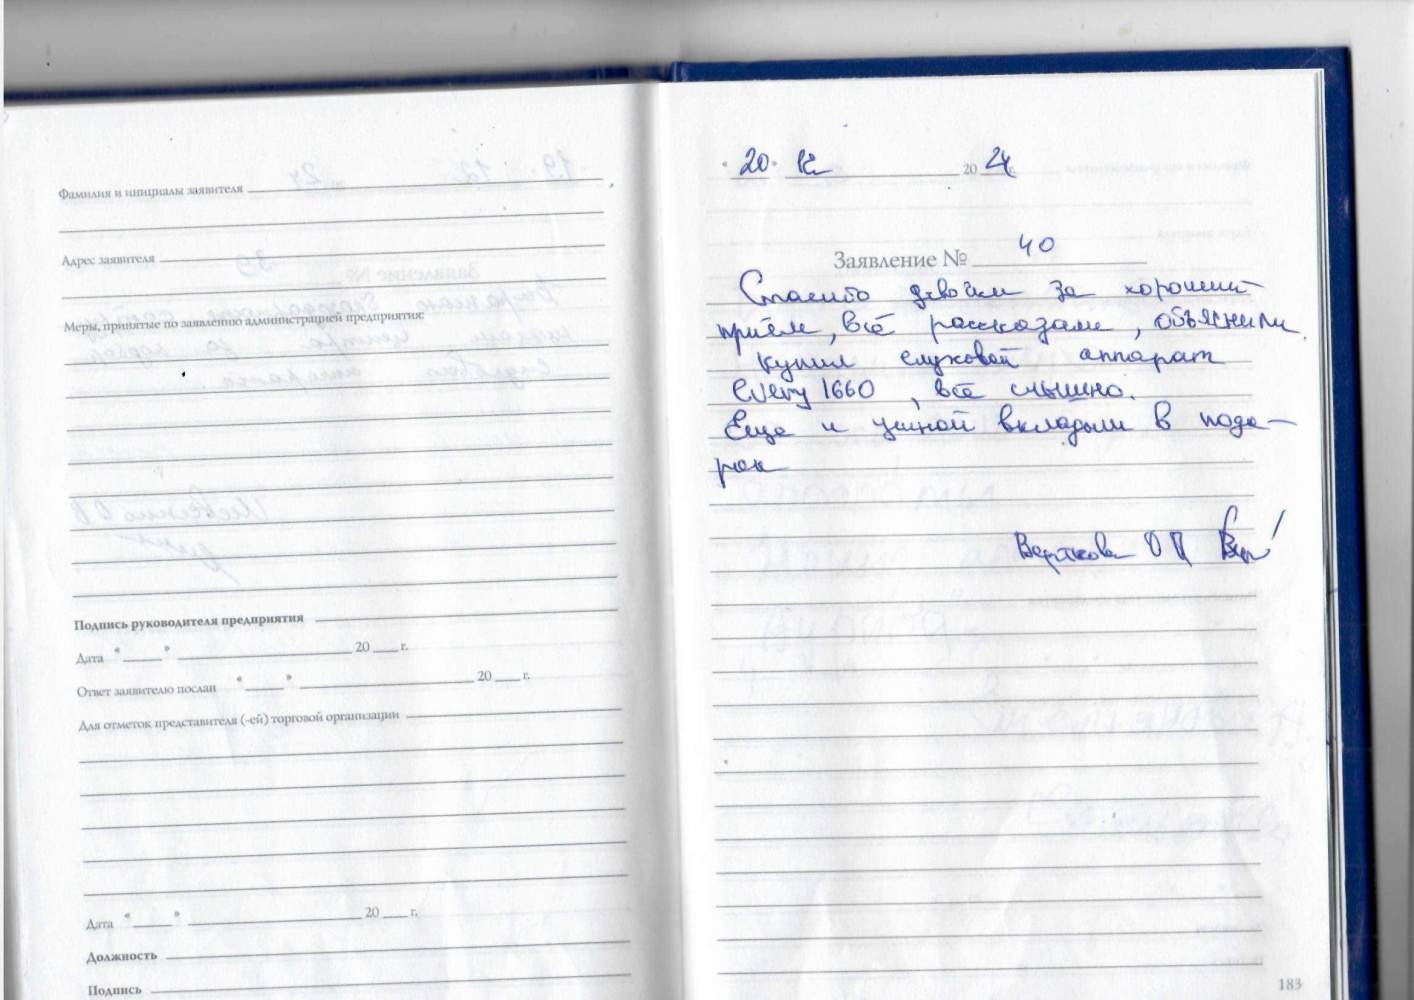 Фамилия и инициалы заявителя
Адрес заявителя
Меры, принятые по заявлению администрацией предприятия:
Подпись руководителя предприятия
Дата « » 20 г.
Ответ заявителю послан « » 20 г.
Для отметок представителя (-ей) торговой организации
Дата « » 20 г.
Должность
Подпись
« 20 » 12 20 24 г.
Заявление № 40
Спасибо девочкам за хороший
приём, всё рассказали, объяснили
купил слуховой аппарат
Every 1660, всё слышно.
Еще и ушной вкладыш в пода-
рок
Верткова О П
183